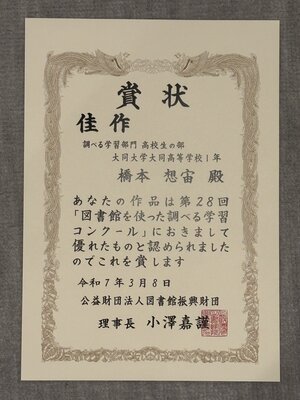 賞状
佳作
調べる学習部門 高校生の部
大同大学大同高等学校1年
橋本 想宙 殿
あなたの作品は第28回
「図書館を使った調べる学習
コンクール」におきまして
優れたものと認められました
のでこれを賞します
令和7年3月8日
公益財団法人図書館振興財団
理事長 小澤嘉謹